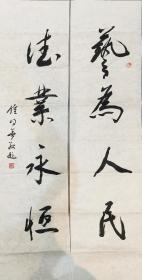 藝為人民
德業永恒